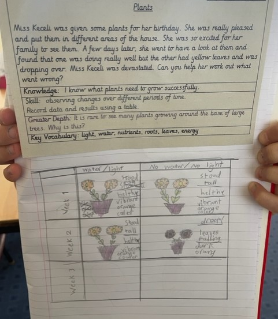 Plants
Miss Keceli was given some plants for her birthday. She was really pleased
and put them in different areas of the house. She was so excited for her
family to see them. A few days later, she went to have a look at them and
found that one was doing really well but the other had yellow leaves and was
dropping over. Miss Keceli was devastated. Can you help her work out what
went wrong?
Knowledge: I know what plants need to grow successfully.
Skill: observing changes over different periods of time.
Record data and results using a table.
Greater Depth: It is rare to see many plants growing around the base of large
trees. Why is this?
Key Vocabulary: light, water, nutrients, roots, leaves, energy
Water/light
No water/no light
Week 1
stood
tall
vibrant
orange
stood
tall
vibrant
orange
Week 2
stood
tall
leaves
Week 3